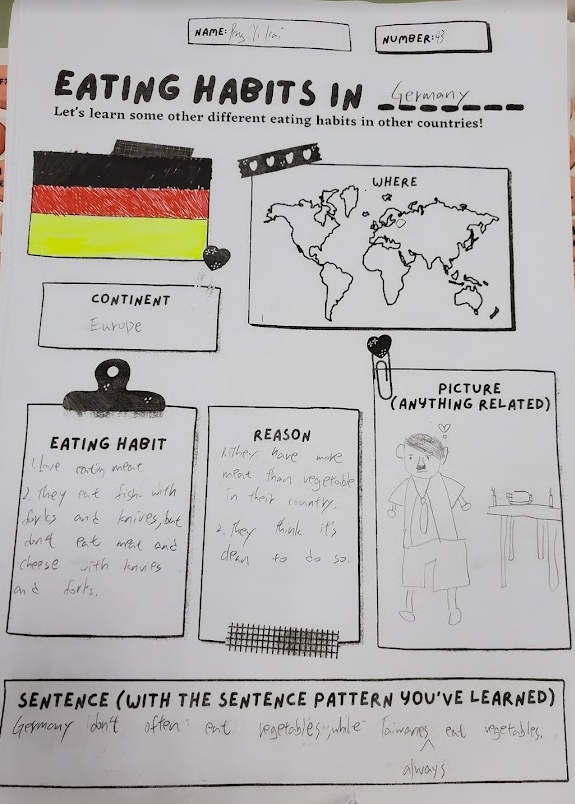 NAME: Ping Yi kai
NUMBER: 43
EATING HABITS IN Germany
Let's learn some other different eating habits in other countries!
WHERE
CONTINENT
Europe
EATING HABIT
1. love eating meat
2. they eat fish with
forks and knives, but
don't eat meat and
cheese with knvies
and forks.
REASON
1. they have more
meat than vegetable
in their country.
2. they think it's
clean to do so.
PICTURE
(ANYTHING RELATED)
SENTENCE (WITH THE SENTENCE PATTERN YOU'VE LEARNED)
Germany don't often eat vegetables, while Taiwanes eat vegetables.
always